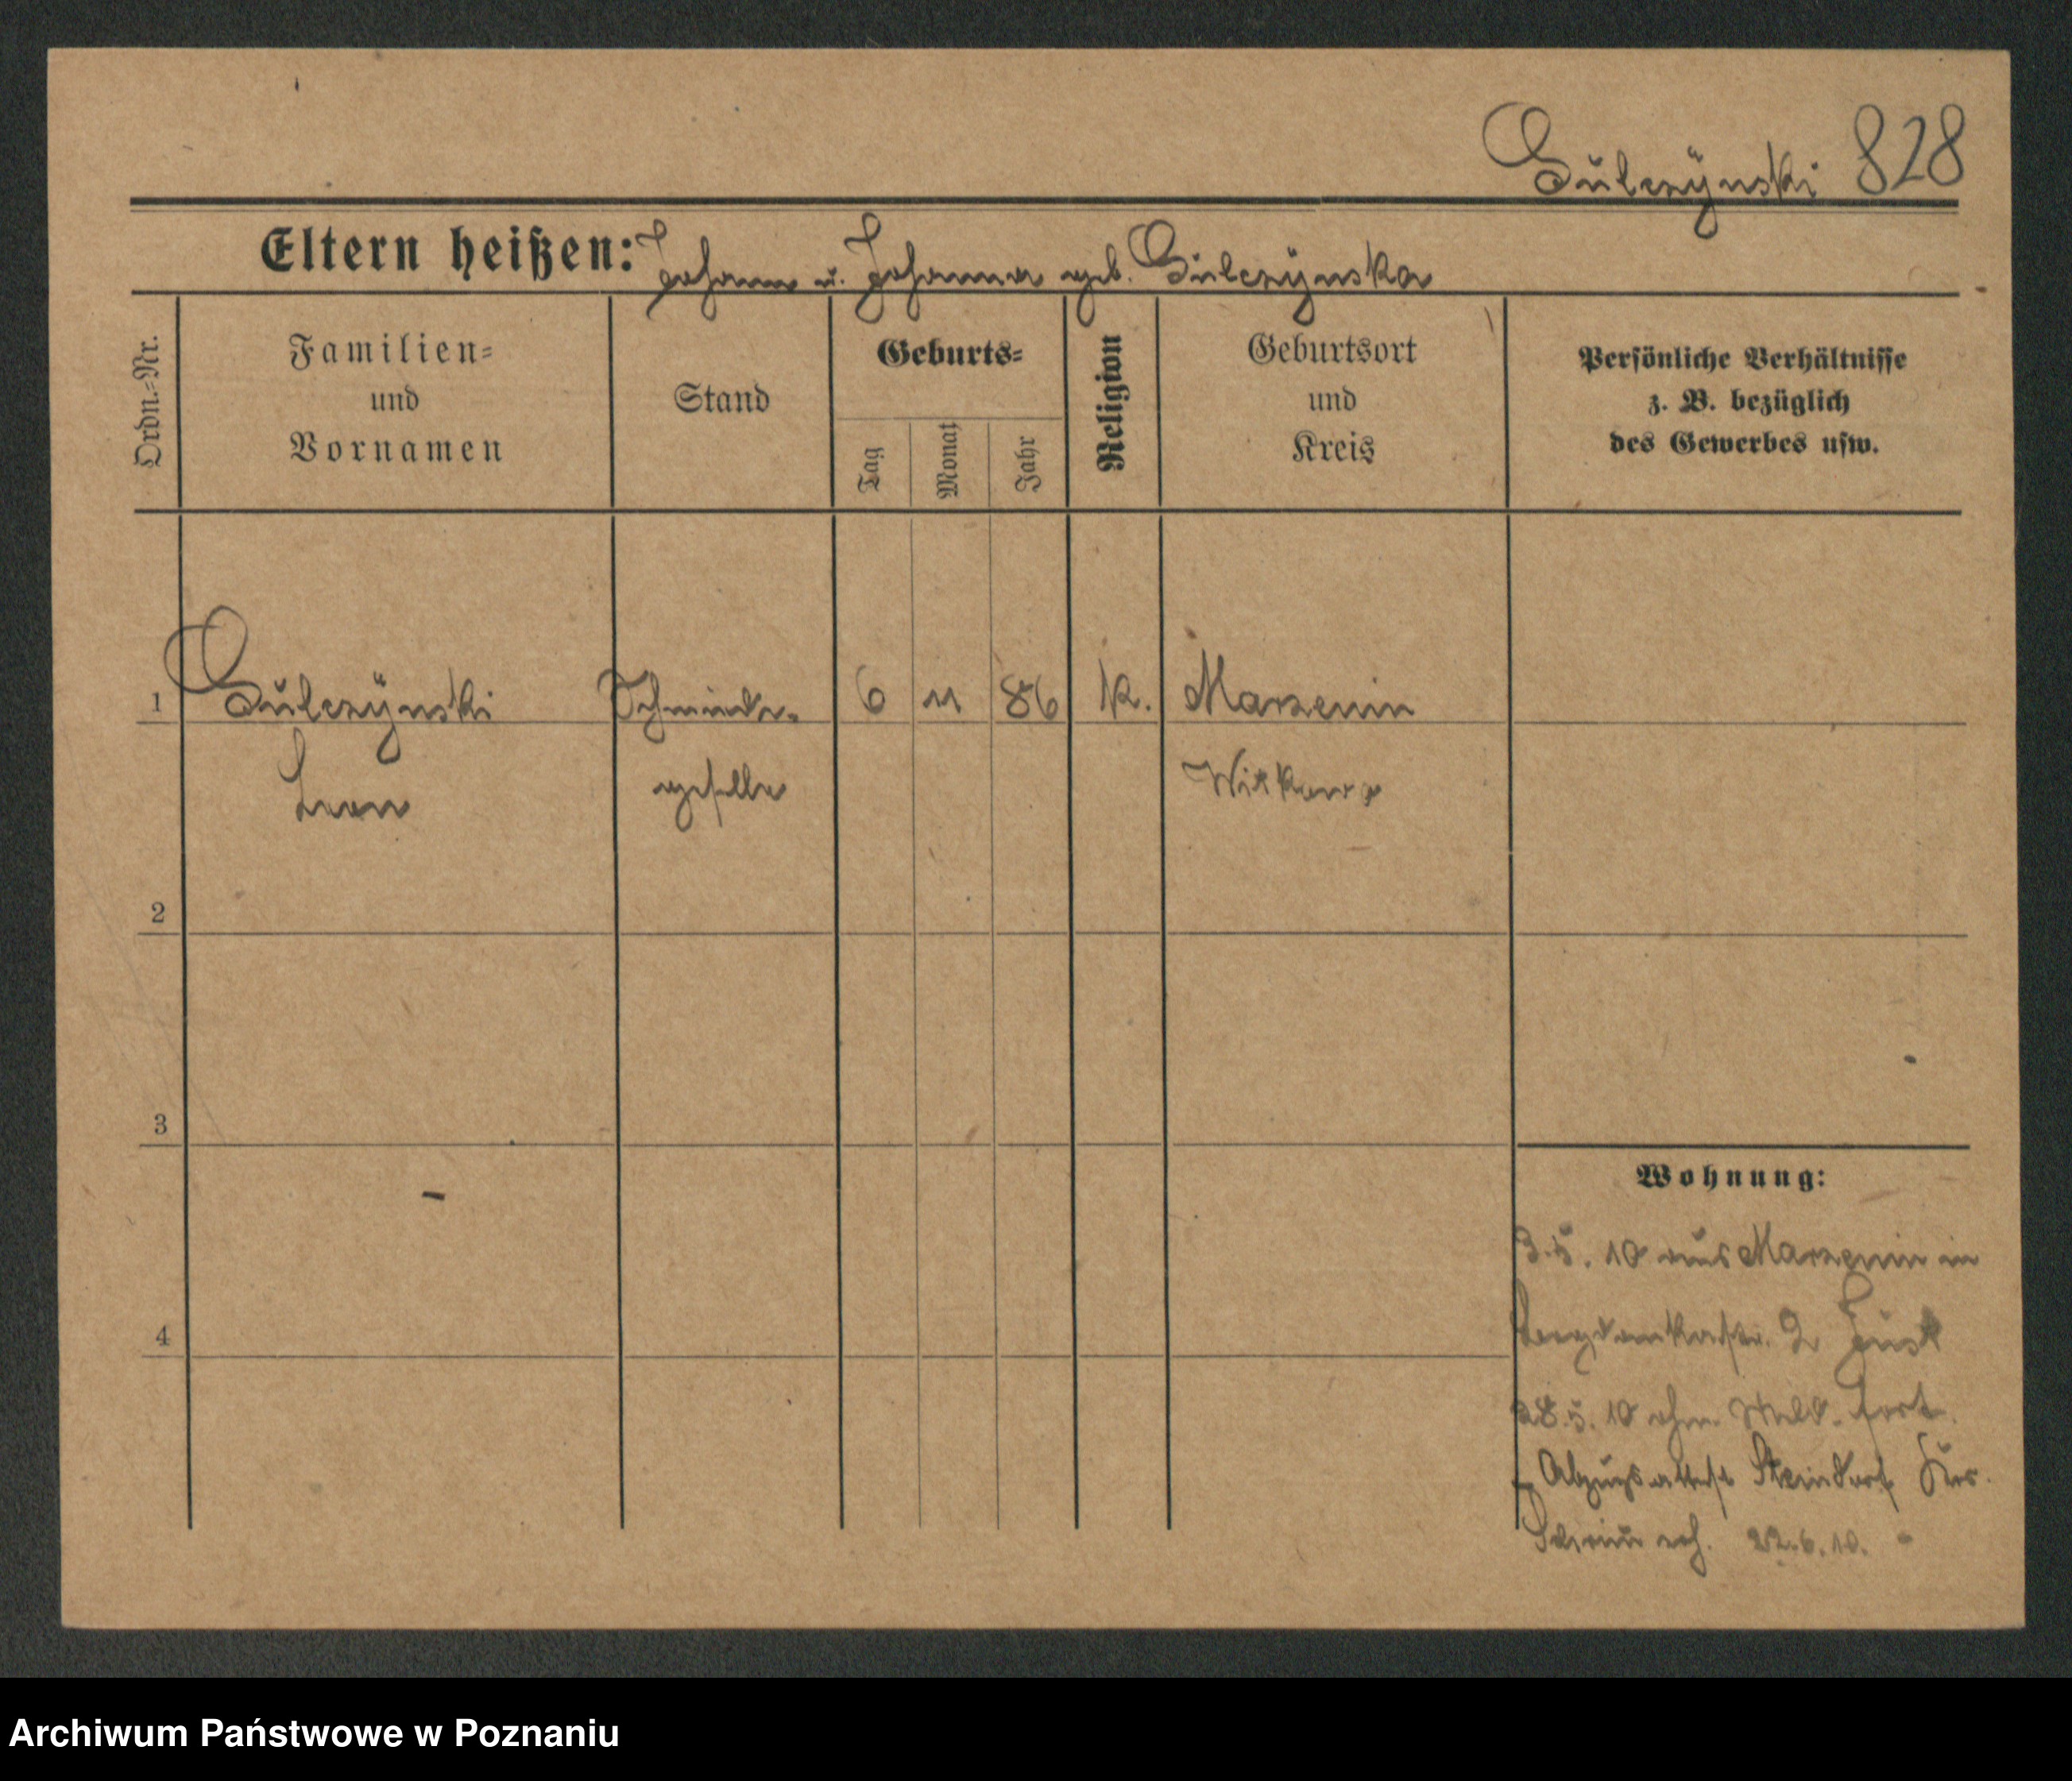 Sulczynski 828
Eltern heißen: Johann u. Johanna geb. Sulczynska
Ordn.-Nr.
Familien-
und
Vornamen
Stand
Geburts-
Tag
Monat
Jahr
Religion
Geburtsort
und
Kreis
Persönliche Verhältnisse
z. B. bezüglich
des Gewerbes usw.
1 Sulczynski Schmiede- 6 11 86 k. Marzenin
Leon geselle Witkowo
2
3
4
Wohnung:
3.5.10 aus Marzenin in
2
28.5.10 ohne Meld. fort.
Abzugsattest Steindorf Krs.
22.6.10.
Archiwum Państwowe w Poznaniu